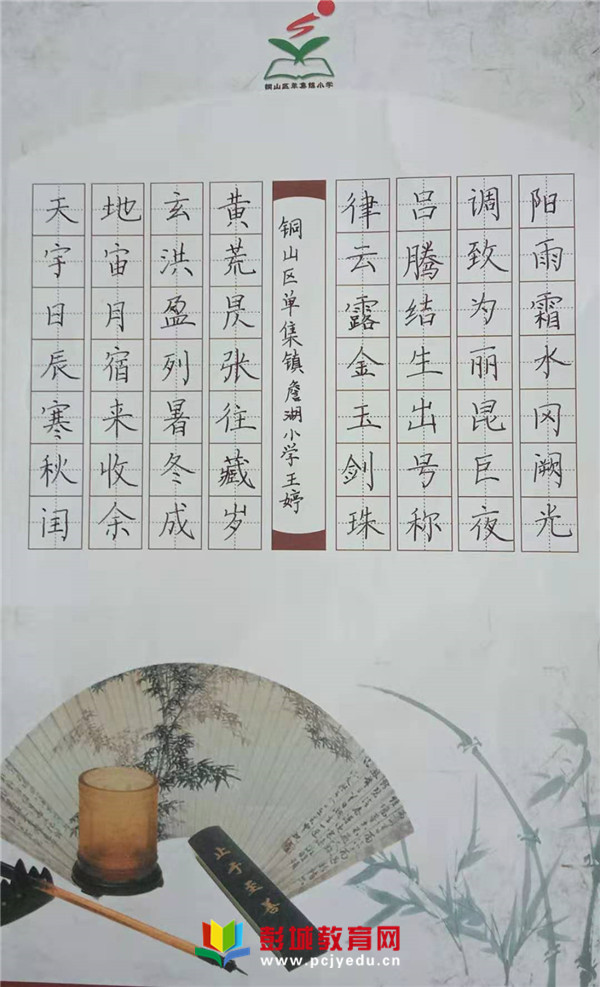 铜山区单集镇小学
天地玄黄
宇宙洪荒
日月盈昃
辰宿列张
寒来暑往
秋收冬藏
闰余成岁
铜山区单集镇詹湖小学王婷
律吕调阳
云腾致雨
露结为霜
金生丽水
玉出昆冈
剑号巨阙
珠称夜光
止于至善
彭城教育网
www.pcjyedu.cn